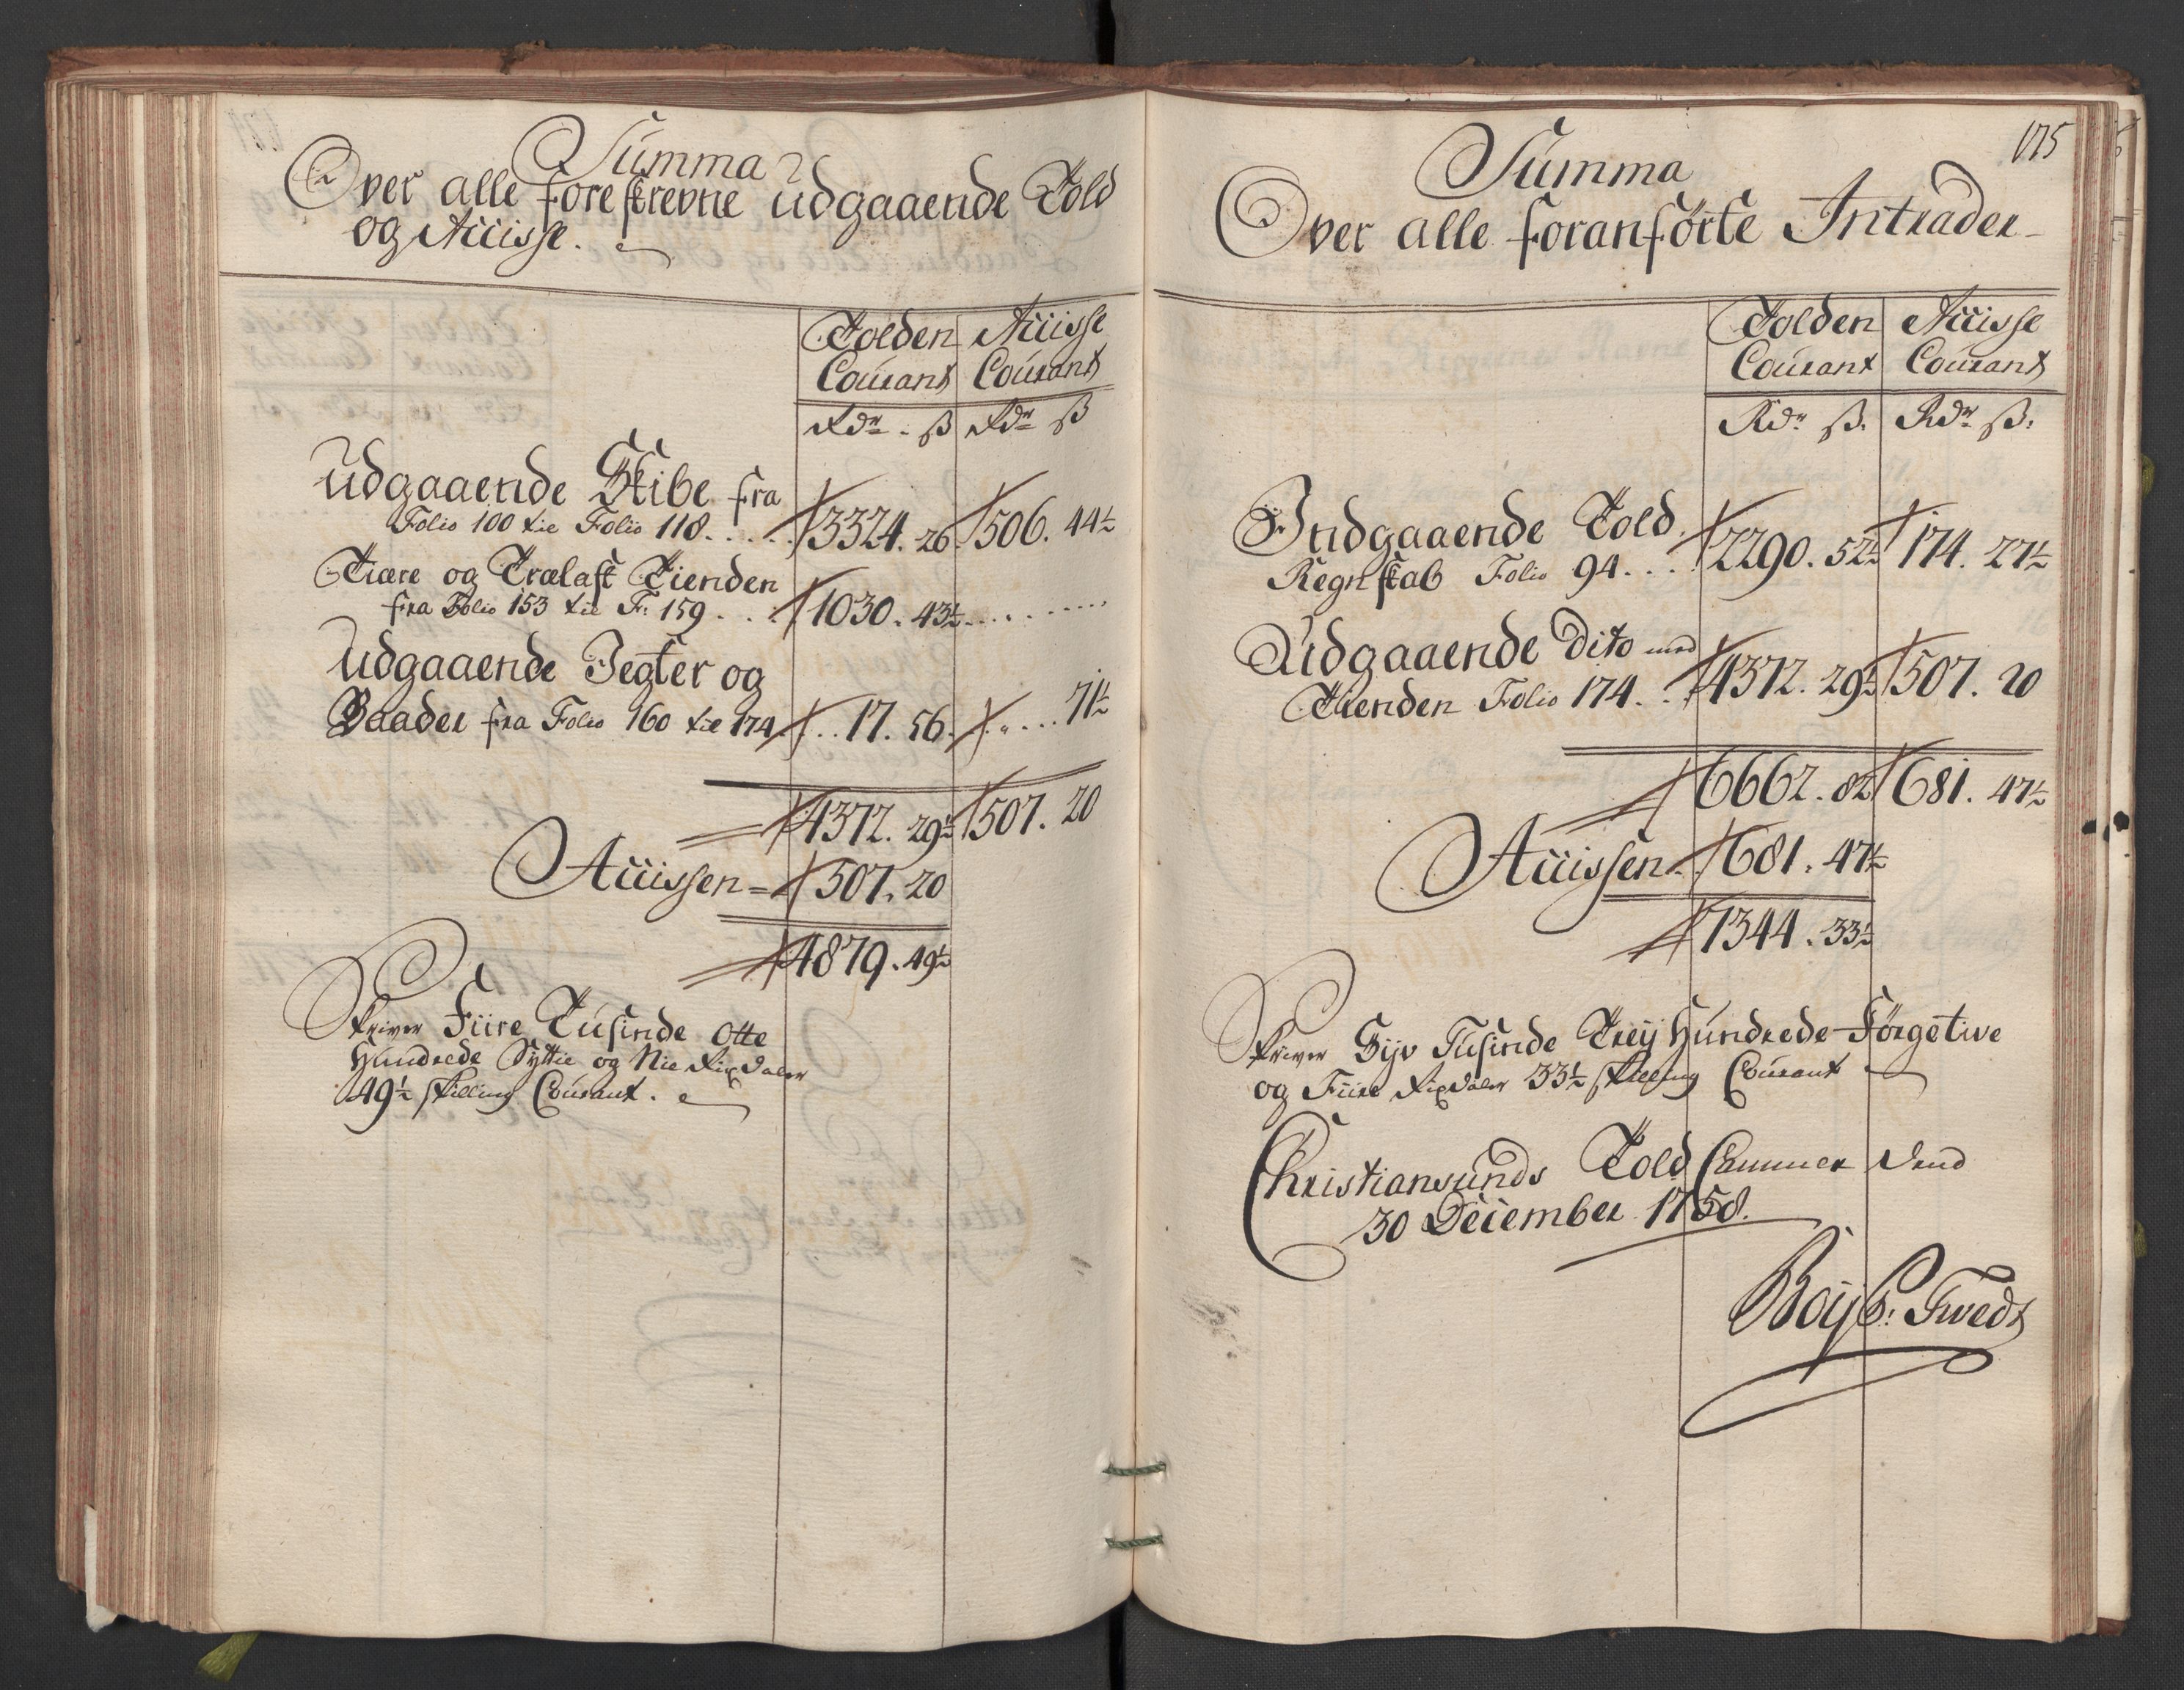 Summa
Over alle foreskrevne udgaaende Told
og Accisse.
Tolden Accisse
Courant Courant
Rdr ß Rdr ß
Udgaaende Skibe fra
Folio 100 til Folio 118..... 3324. 26 506. 44½
Tiære og Trælast Tienden
fra Folio 153 til F: 159... 1030. 43½
Udgaaende Jegter og
Baader fra Folio 160 til 174 17. 56. " 71½
4372. 29½ 507. 20
Accissen = 507. 20
4879. 49½
Skriver Fiire Tusinde Otte
Hundrede Syttie og Nie Rixdaler
49½ skilling Courant.
175
Summa
Over alle foranførte Intrader
Tolden Accisse
Courant Courant
Rdr ß. Rdr ß.
Indgaaende Told
Regnskab Folio 94... 2290. 52½ 174. 27½
Udgaaende Dito med
Tienden Folio 174.. 4372. 29½ 507. 20
6662. 82 681. 47½
Accissen 681. 47½
7344. 33½
Skriver Syv Tusinde Trej Hundrede Førgetive
og Fiire Rixdaler 33½ skilling Courant
Christiansunds Told Cammer dend
30 December 1758.
Boÿ P: Tvedt